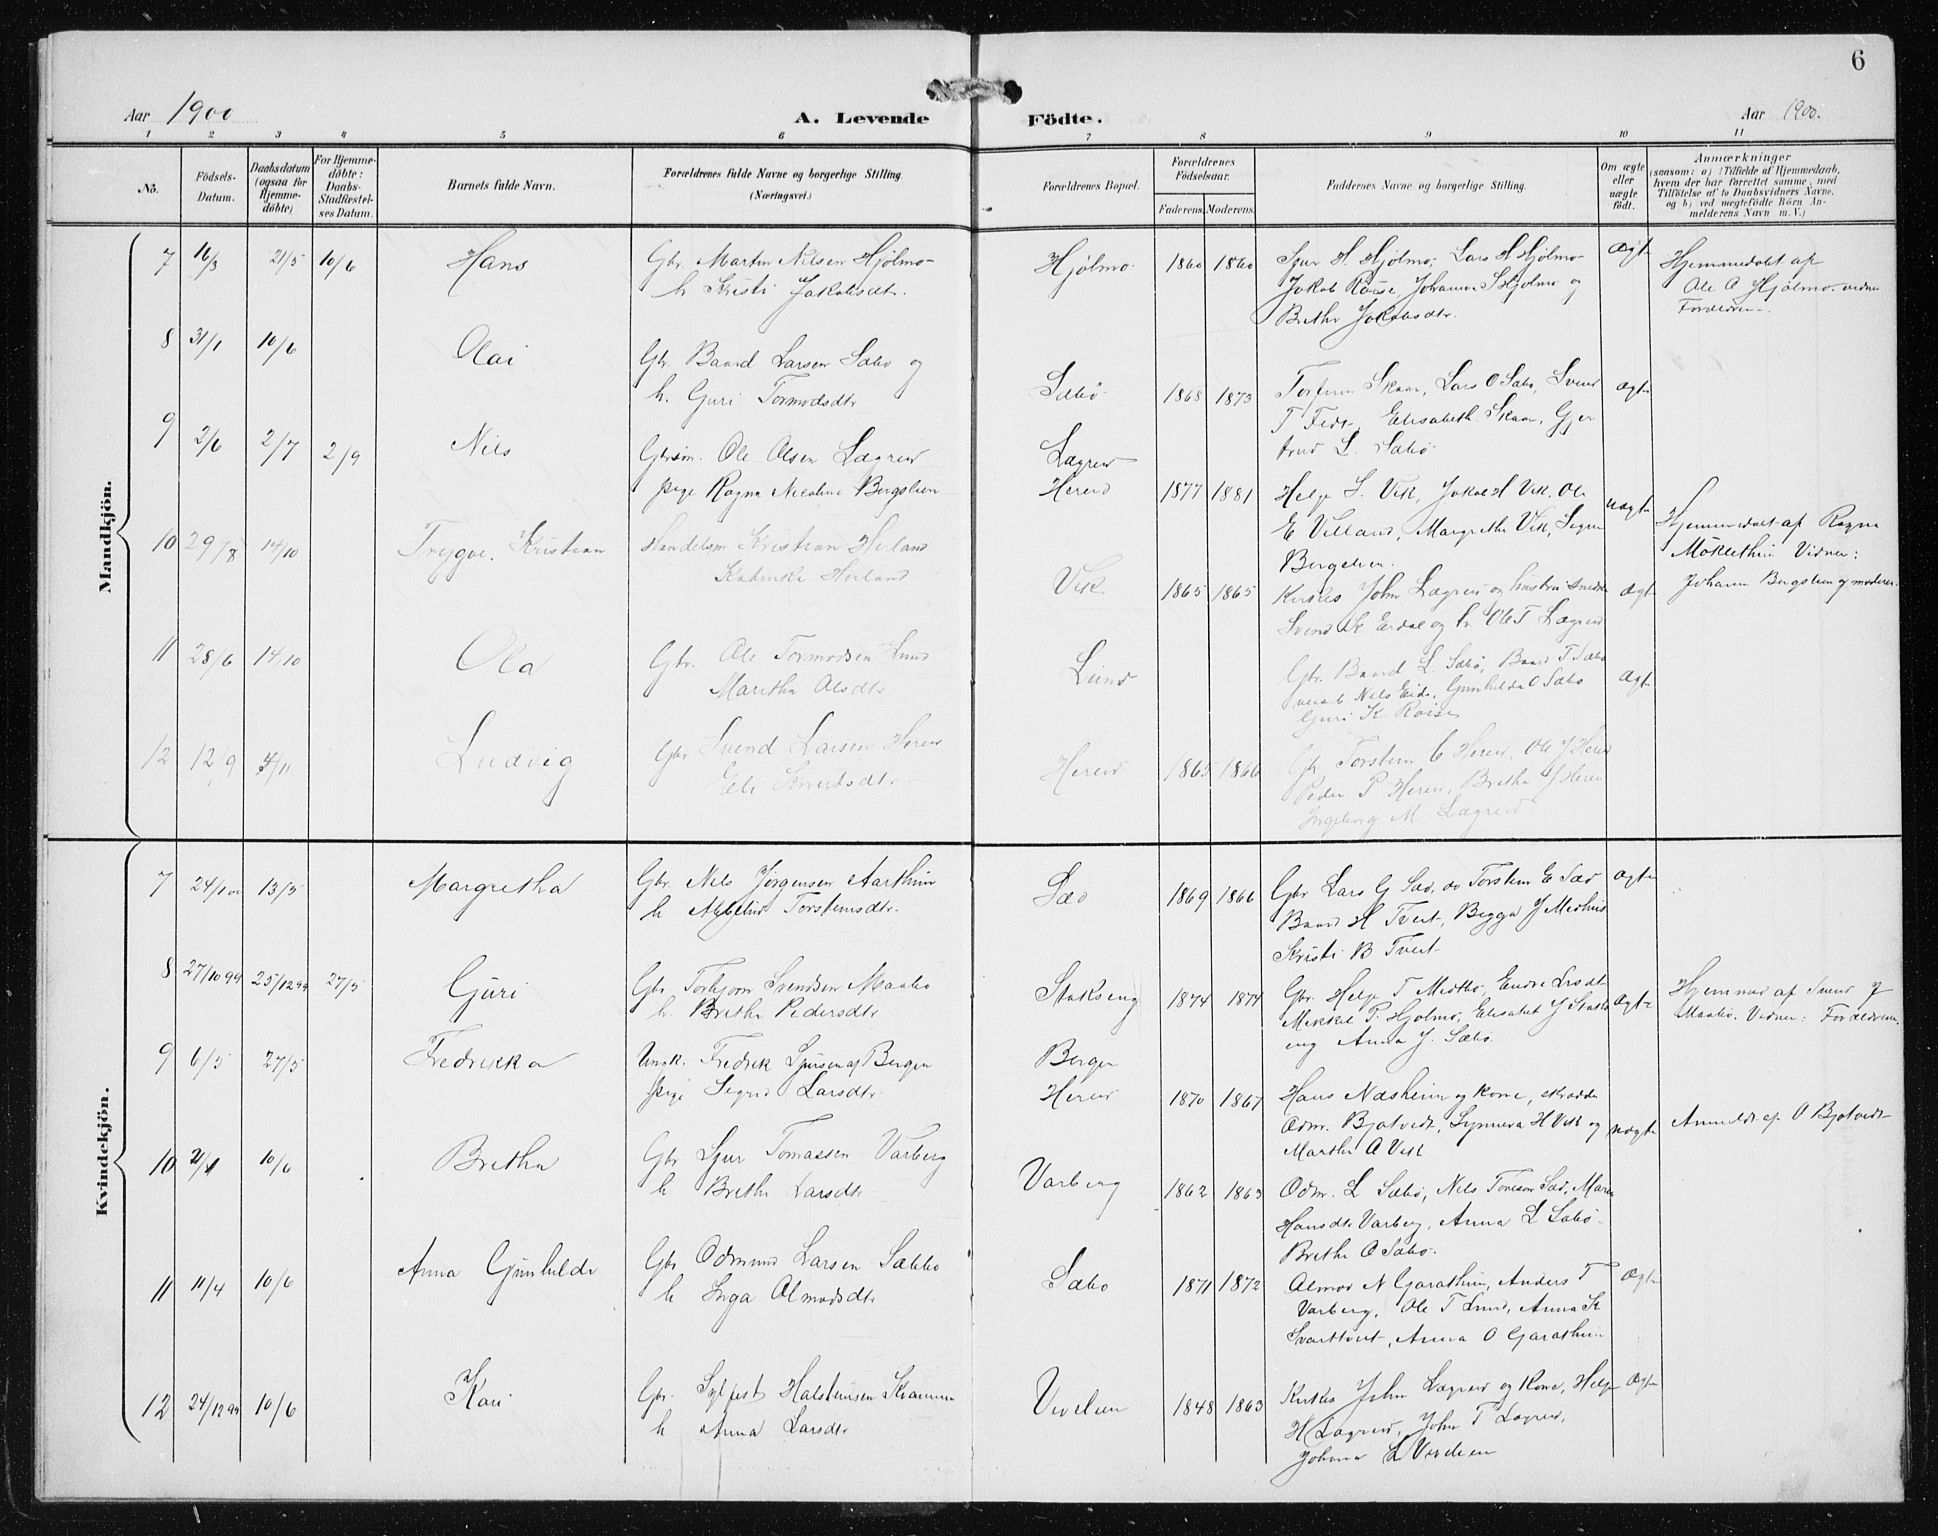 6
Aar 1900
A. Levende
Födte.
Aar 1900.
1 2 3 4 5 6 7 8 9 10 11
No.
Födsels-
Datum.
Daabsdatum
(ogsaa for
Hjemme-
döbte)
For Hjemme-
döbte:
Daabs-
Stadfæstel-
ses Datum.
Barnets fulde Navn.
Forældrenes fulde Navne og borgerlige Stilling.
(Næringsvei.)
Forældrenes Bopæl.
Forældrenes
Födselsaar.
Faderens. Moderens.
Faddernes Navne og borgerlige Stilling.
Om ægte
eller
uægte
födt.
Anmærkninger
(saasom: a) i Tilfælde af Hjemmedaab,
hvem der har forrettet samme, med
Tilföielse af to Daabsvidners Navne,
og b) ved uægtefödte Börn An-
melderens Navn m. V.)
Mandkjön.
7 16/3 21/5 10/6 Hans
Gbr. Martin Nilsen Hjølmo
h. Kristi Jakobsdtr.
Hjølmo 1860 1860
Sjur H. Hjølmo, Lars H Hjølmo
Jakob Røise, Johanna S Hjølmo og
Brethe Jakobsdtr.
Ægte
Hjemmedøbt af
Ole O Hjølmo. vidner
Forældrene.
8 31/1 10/6 Olai
Gbr. Baard Larsen Sæbø og
h. Guri Tormodsdtr
Sæbø 1868 1873
Torfinn Skaar, Lars O Sæbø, Svend
T Fedt, Elisabeth Skaar, Gjer
trud L. Sæbø
Ægte
9 2/6 2/7 2/9 Nils
Gbrsøn. Ole Olsen Lægreid
Pige Ragna Nicoline Bergslien
Lægreid
Hereid 1877 1881
Helge L. Vik, Jakob H Vik. Ole
E Villand, Margrethe Vik, Sigrid
Bergslien.
uægte
Hjemmedøbt af Ragna
Møklethun Vidner:
Johanna Bergslien og moderen
10 29/8 14/10 Trygve. Kristian
Handelsm Kristian Herland
Kathinka Herland
Vik 1865 1865
Kirkes John Lægreid og hustru
Svend Er Erdal og h. Ole T Lægreid
Ægt
11 28/6 14/10 Ola
Gbr. Ole Tormodsen Lund
Maritha Olsdtr
Lund
Gbr. Baard L. Sæbø, Baard T Sæbø
Nils Eide, Gunhilda O Sæbø
Guri K Røise
Ægt
12 12/9 4/11 Ludvig
Gbr Svend Larsen Hereid
Eli Knutsdtr
Hereid 1865 1866
Gbr Torstein C Hereid, Ole J Hereid
Peder P Hereid, Bretha J Hereid
Ingeborg M Lægreid
Kvindekjön.
7 24/1 00 13/5 Margretha
Gbr. Nils Jørgensen Aarthun
h Torsteinsdtr.
Sæd 1869 1866
Gbr Lars G Sæd, do Torstein E Sæd
Baard H Tveit, Brygga J Medhus
Kristi B Tveit
Ægte
8 27/10 99 25/12 99 27/5 Guri
Gbr Torbjørn Svendsen Maabø
h. Brethe Pedersdtr
Stokseng 1874 1874
Gbr. Helge T Medbø, Endre
Mikkel P. Hjølmo, Elisabet J Stoks
eng Anna J. Sæbø
Ægte
Hjemmed af Svend J
Maabø. Vidner: Forældrene.
9 6/5 27/5 Fredrikka
Ungk. Fredrik Sjursen af Bergen
Pige Sigrid Larsdtr
Bergen
Hereid 1870 1867
Hans Næsheim og Kone, skrædder
Odm. Bjotvedt, Synneva H Vik og
Marthe A Vik
uægte
Anmeldt af O Bjotvedt
10 21/1 10/6 Bretha
Gbr Sjur Tomassen Varberg
h Brethe Larsdtr
Varberg 1862 1863
Odm. L Sæbø, Nils Toresen Sæd, Mari
Hansdtr Varberg, Anna L Sæbø
Brethe O Sæbø.
11 11/4 10/6 Anna Gunhilde
Gbr Odmund Larsen Sæbbø
h Inga Olmodsdtr
Sæbø 1871 1872
Olmod N Garathun, Anders T
Varberg, Ole T Lund, Anna K
Svarttveit, Anna O Garathun
Ægte
12 24/12 99 10/6 Kari
Gbr. Sylfest Halsteinsen
h Anna Larsdtr
Vivelien 1848 1863
Kirkes John Lægreid og Kone, Helge
H Lægreid, John T Lægreid,
Johanna L Vivelien
Ægte